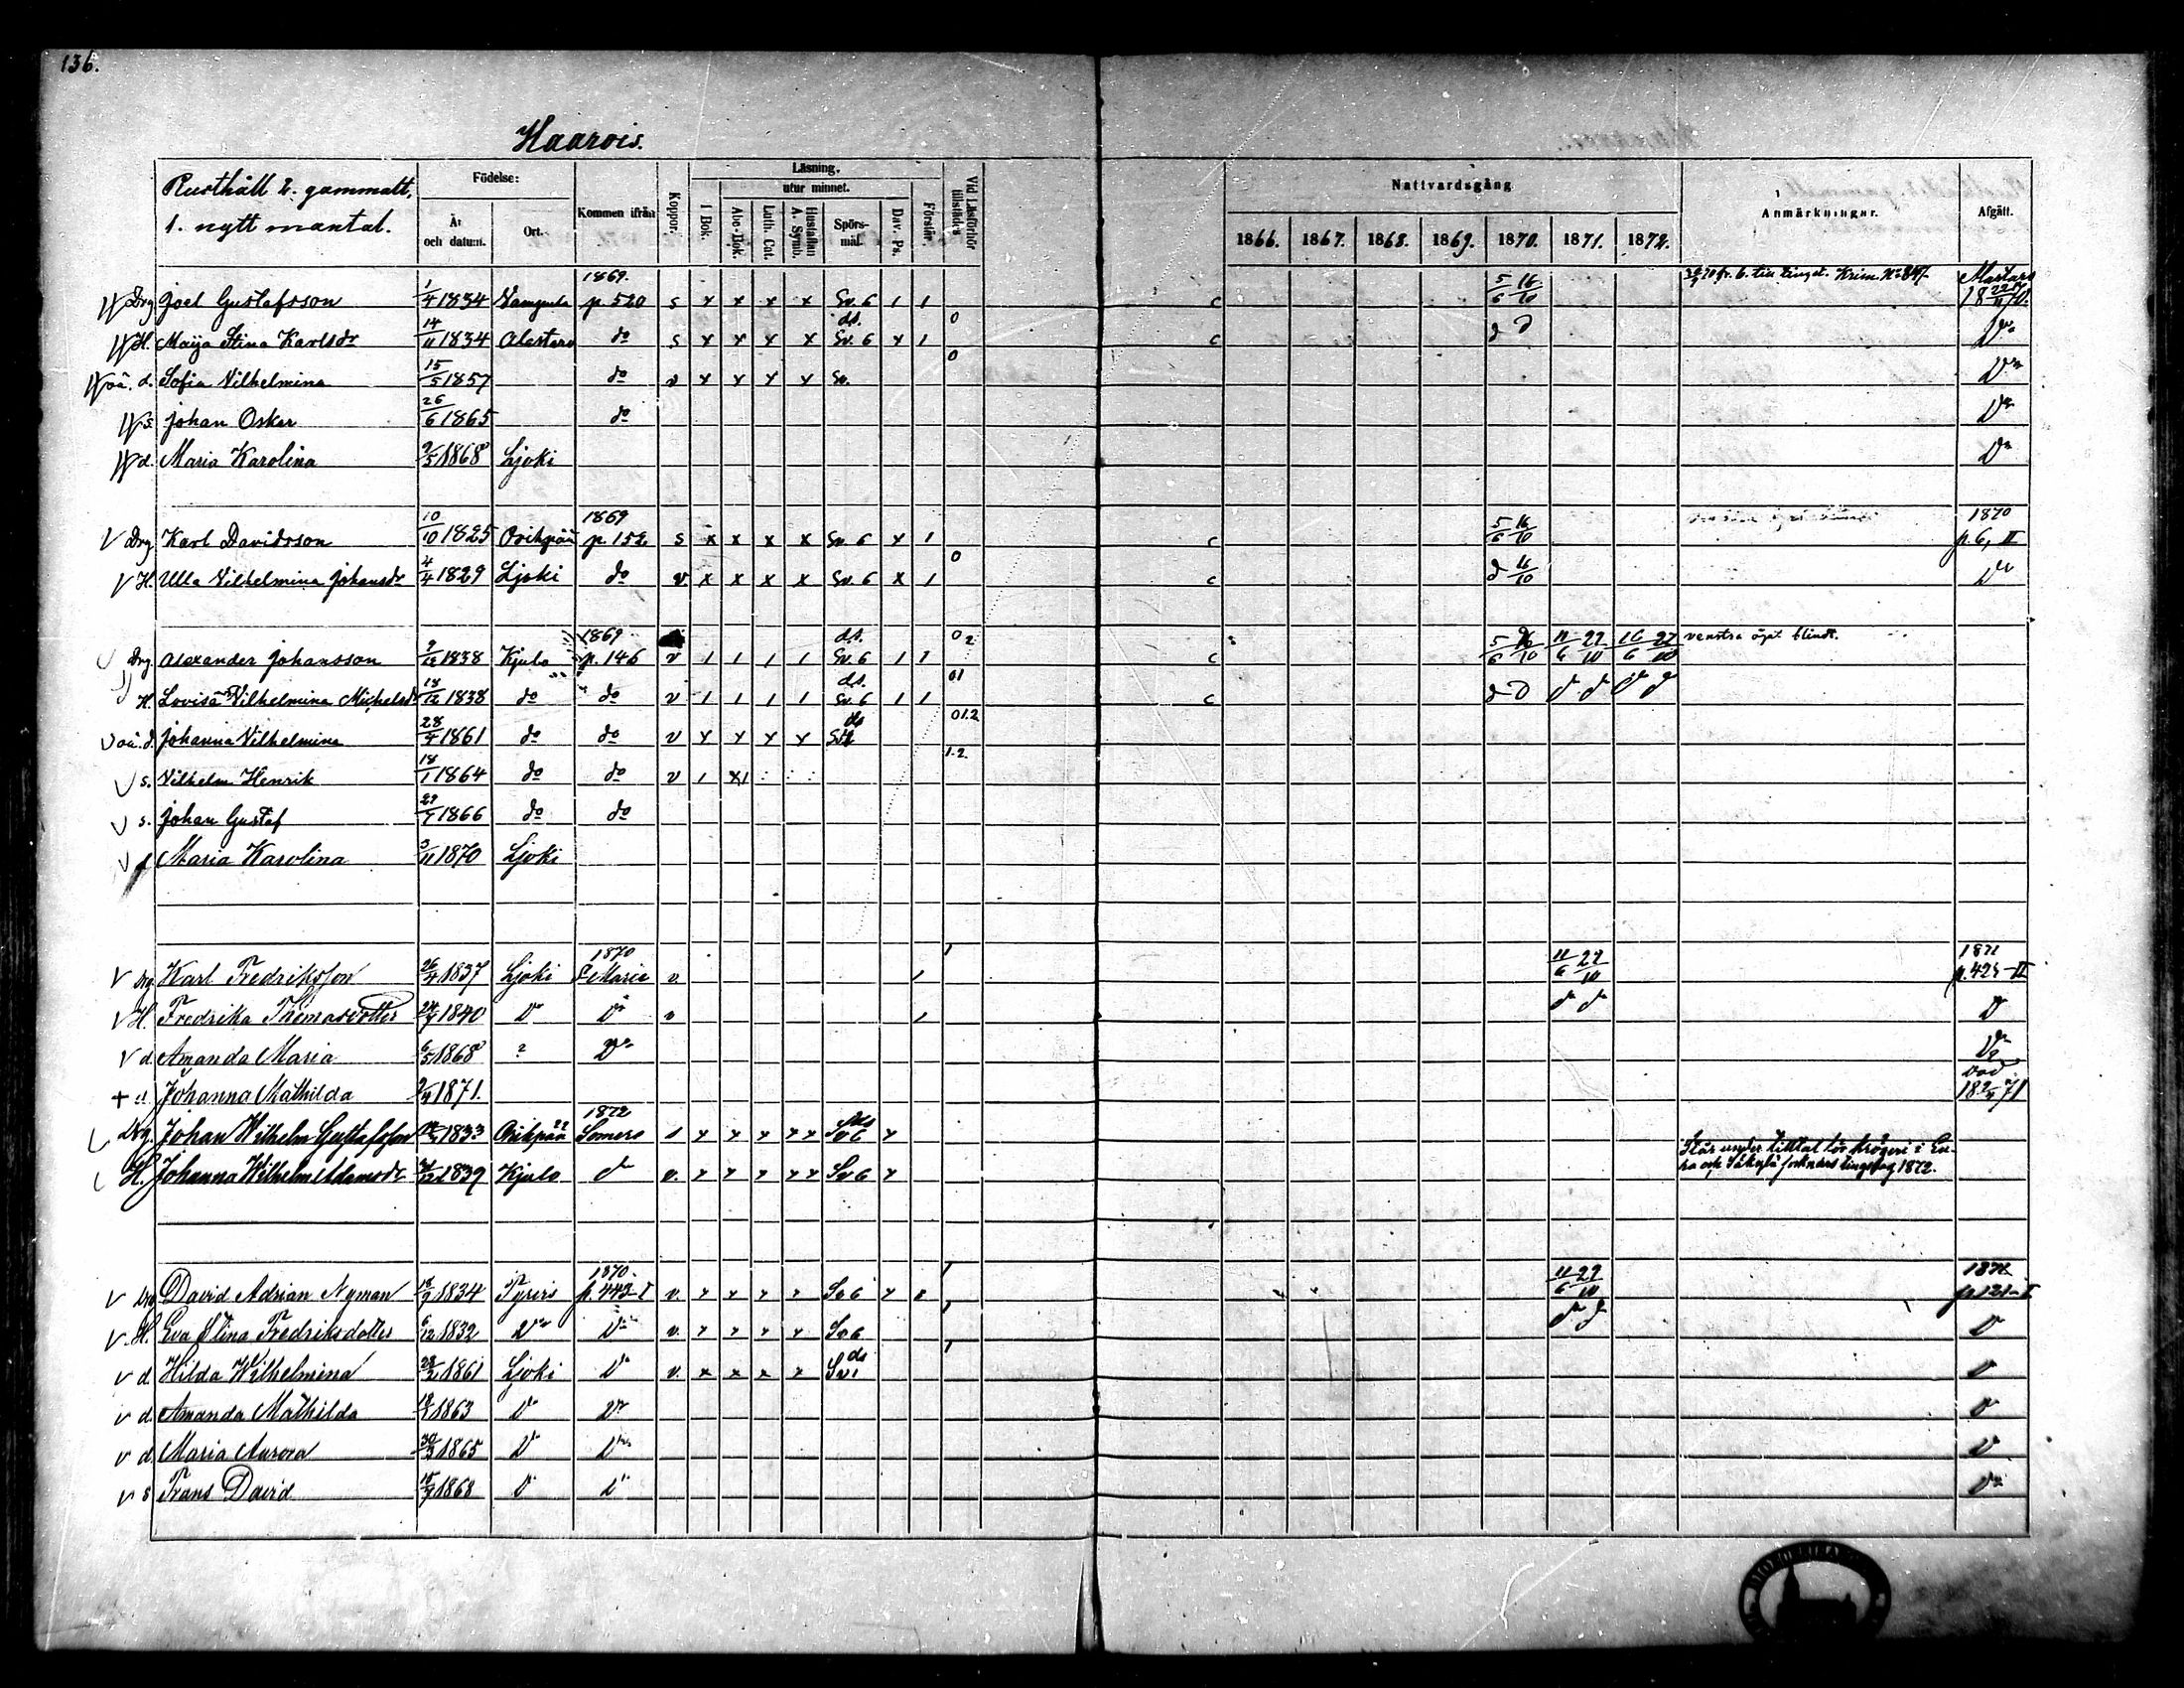 136.
Haarois.
Rusthåll 2. gammalt,
1. nytt mantal.
Födelse:
År och datum.
Ort.
Kommen ifrån
Koppor.
Läsning.
utur minnet.
I Bok.
Abc-Bok.
Luth. Cat.
Hustaflan A. Symb.
Spörsmål.
Dav. Ps.
Förstår.
Vid Läsförhör tillstädes
Nattvardsgång
1866. 1867. 1868. 1869. 1870. 1871. 1872.
Anmärkningar.
Afgått.
Drg Joel Gustafsson 1/4 1834 Vampula 1869. p. 520 s x x x x Sv. 6 1 1 c 5/6 16/10
H. Maija Stina Karlsdr 14/11 1834 Alastaro do s x x x x ds. Sv. 6 x 1 0 c d d Do
oä. d. Sofia Vilhelmina 15/5 1857 do v x x x x Sv. 0 Do
s. Johan Oskar 26/6 1865 do Do
d. Maria Karolina 9/5 1868 Ljoki Do
Drg Karl Davidsson 10/10 1825 Orihpää 1869 p. 152 s x x x x Sv 6 x 1 c 5/6 16/10 1870 p. 6, II
H. Ulla Vilhelmina Johansdr 4/4 1829 Ljoki do v x x x x Sv. 6 x 1 0 c d 16/10 Do
Drg. Alexander Johansson 9/12 1838 Kjulo 1869 p. 146 v 1 1 1 1 ds. Sv. 6 1 1 0 2 c 5/6 16/10 11/6 22/10 16/6 27/10 venstra ögat blindt.
H. Lovisa Vilhelmina Michelsdr 18/12 1838 do do v 1 1 1 1 ds. Sv. 6 1 1 01 c d d d d d d
oä. d. Johanna Vilhelmina 28/4 1861 do do v x x x x ds 01.2
s. Vilhelm Henrik 18/1 1864 do do v 1 x1 1.2
s. Johan Gustaf 29/5 1866 do do
Maria Karolina 3/11 1870 Ljoki
Drg Karl Fredriksson 26/4 1837 Ljoki 1870 S:t Marie v. 1 1 11/6 22/10 1871 p. 425-II
H. Fredrika Thomasdotter 24/4 1840 Do Do v 1 d d D
d. Amanda Maria 6/5 1868 ? Do Do
" Johanna Mathilda 2/4 1871. Död
Drg. Johan Wilhelm Gustafsson 1833 Orihpää 1872 Somero s x x x x x Sv 6 x
H. Johanna Wilhelm Adamsdr 1839 Kjulo d v. x x x x x Sv 6 x Står under tilltal för krögeri i Eura och Säkylä socknars tingslag 1872.
Drg David Adrian Nyman 18/9 1834 Pyris 1870. p. 442-I v. x x x x Sv 6 x 1 11/6 22/10 1872 p 121-I
H. Eva Stina Fredriksdotter 6/12 1832 Do Do v. x x x x Sv 6 1 d d D
d Hilda Wilhelmina 28/2 1861 Ljoki D v. x x x x ds 1 D
d. Amanda Mathilda 1863 Do Do D
d. Maria Aurora 30/3 1865 D Do D
s Frans David 1868 D D Do